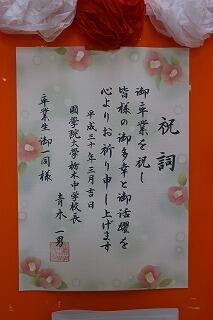 祝詞
御卒業を祝し
皆様の御多幸と御活躍を
心よりお祈り申し上げます
平成三十年三月吉日
國學院大學栃木中学校長
青木一男
卒業生御一同様